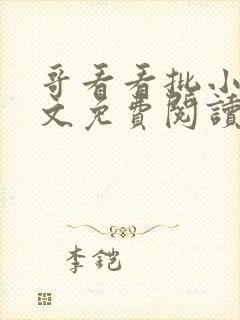 哥看看批小
文免費閱讀
李鎧